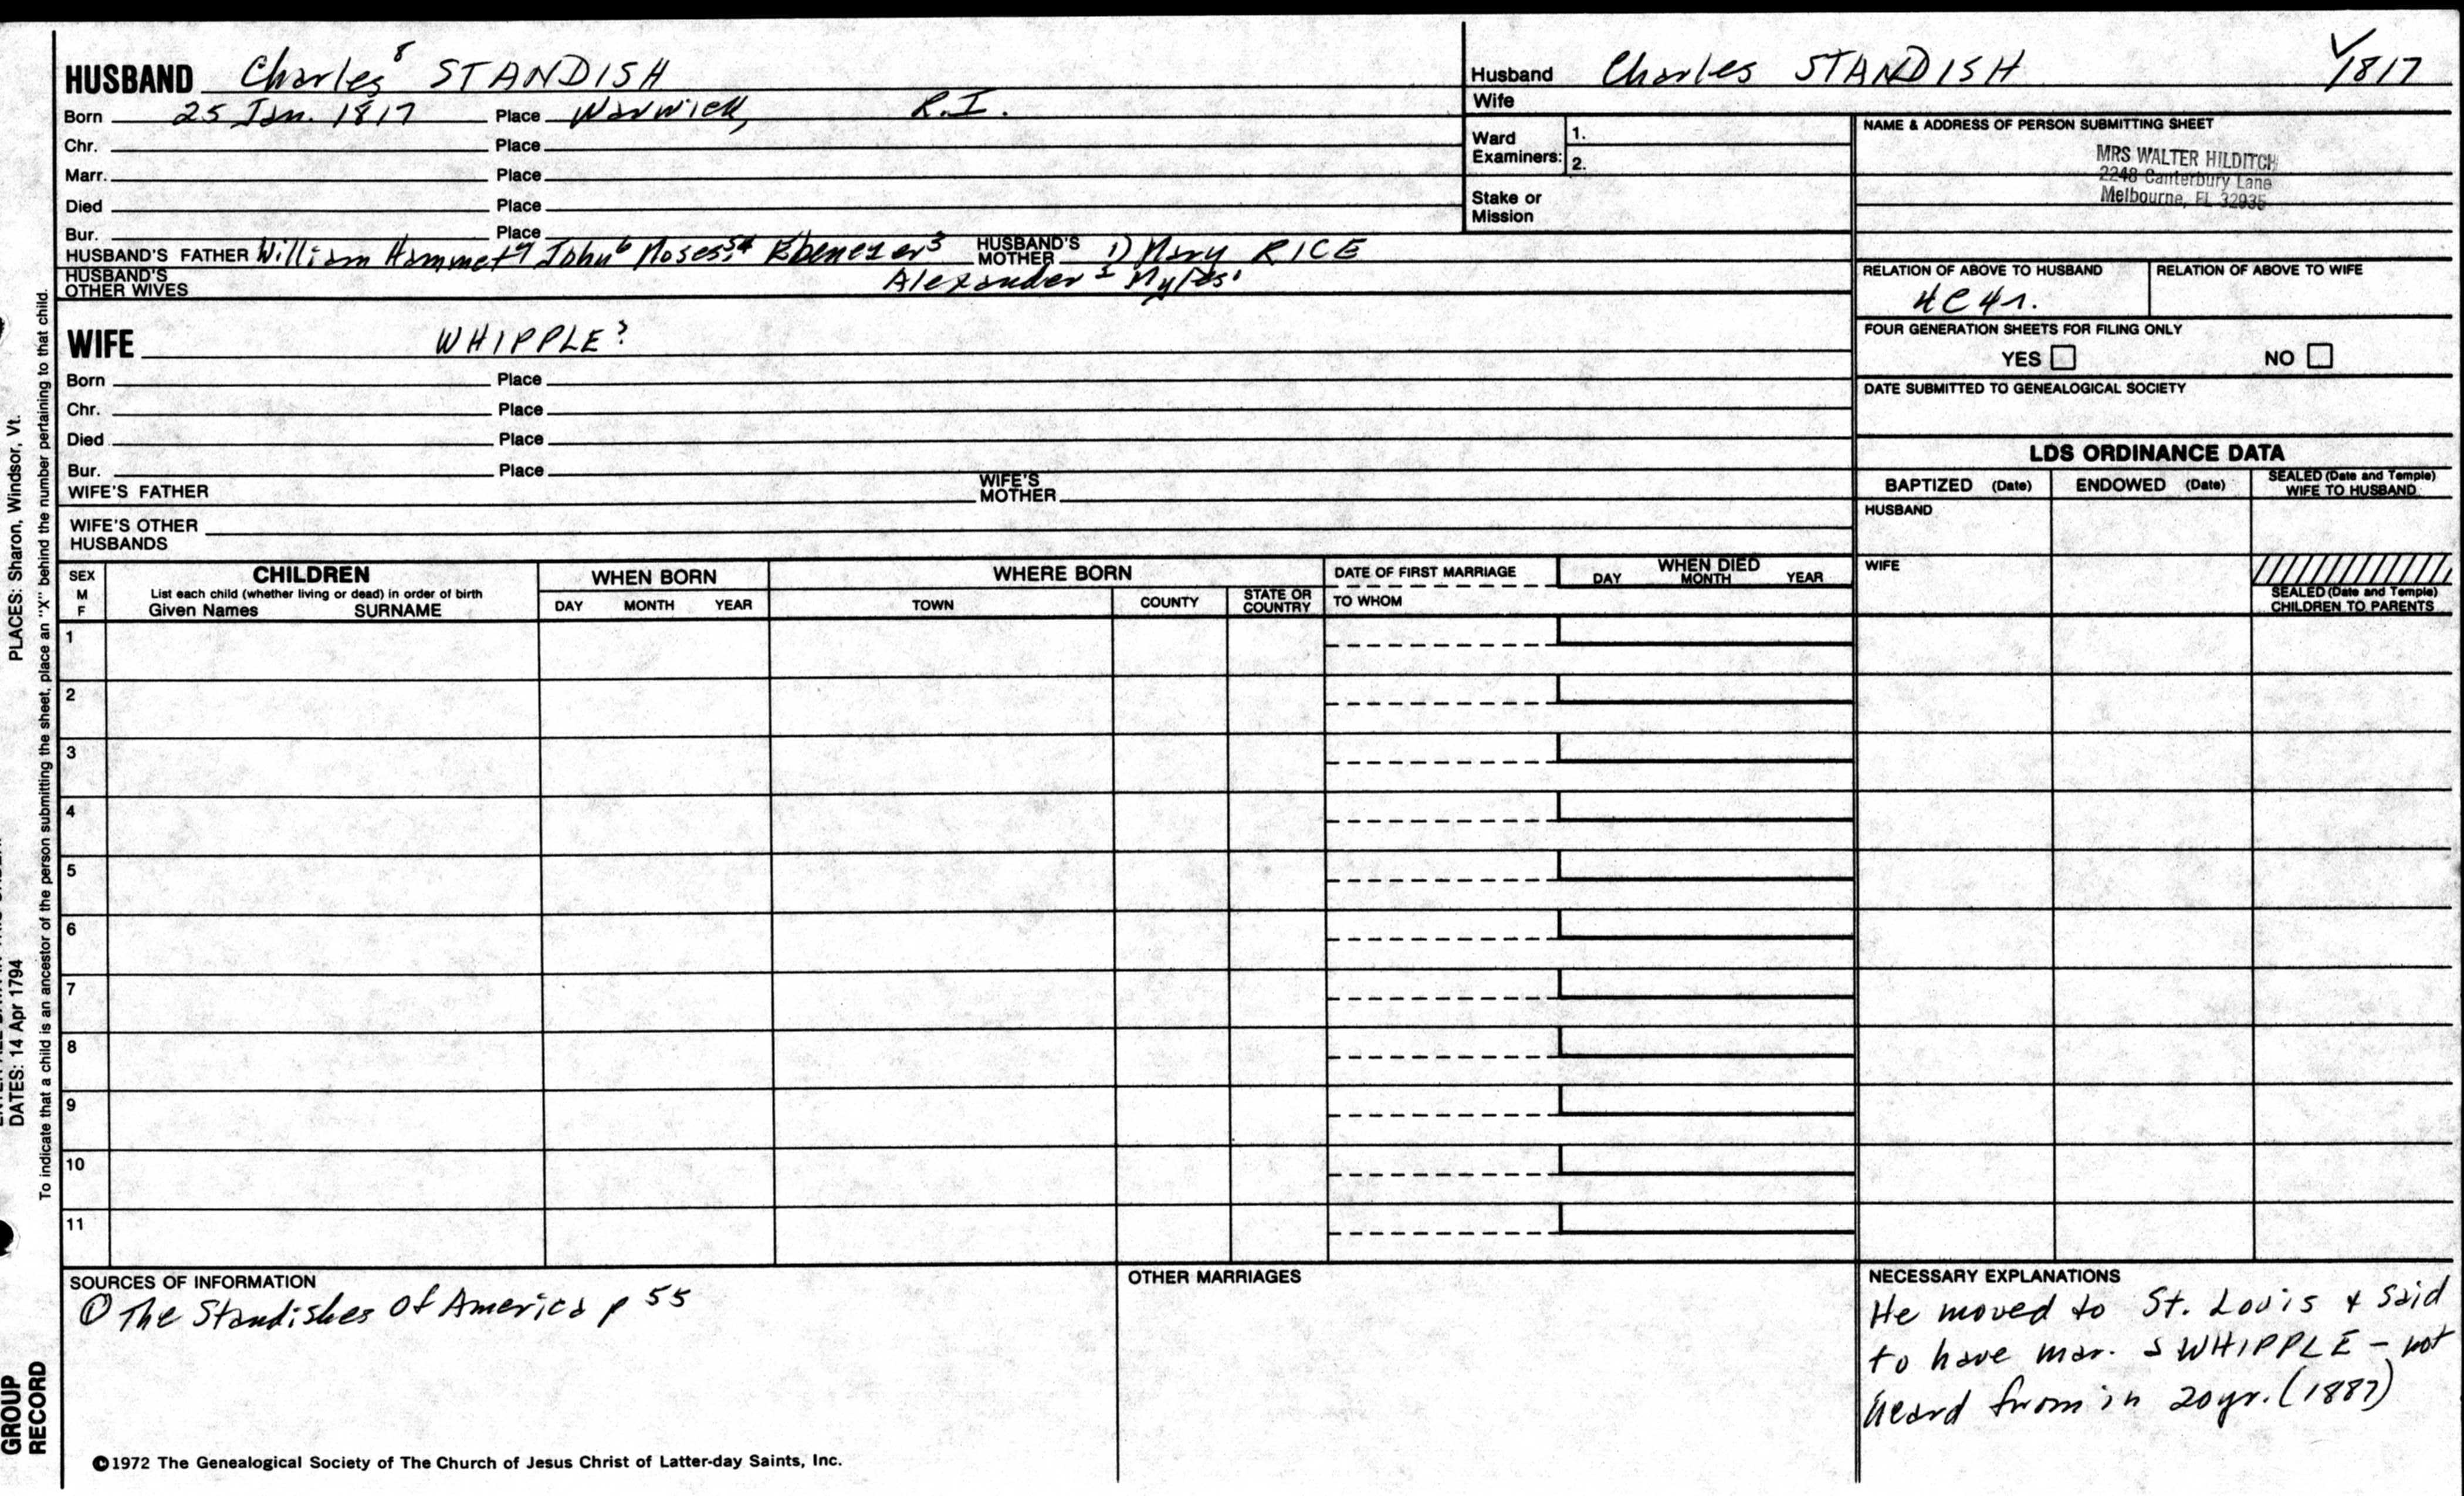 HUSBAND Charles⁸ STANDISH
Born 25 Jan. 1817 Place Warwick, R.I.
Chr. Place
Marr. Place
Died Place
Bur. Place
HUSBAND'S FATHER William Hammet⁷ John⁶ Moses⁵,⁴ Ebenezer³ HUSBAND'S MOTHER 1) Mary RICE
HUSBAND'S OTHER WIVES Alexander² Myles¹
WIFE WHIPPLE?
Born Place
Chr. Place
Died Place
Bur. Place
WIFE'S FATHER WIFE'S MOTHER
WIFE'S OTHER HUSBANDS
Husband Charles STANDISH 1817
Wife
Ward Examiners: 1.
2.
Stake or Mission
NAME & ADDRESS OF PERSON SUBMITTING SHEET
MRS WALTER HILDITCH
2248 Canterbury Lane
Melbourne, FL 32935
RELATION OF ABOVE TO HUSBAND RELATION OF ABOVE TO WIFE
4C4r.
FOUR GENERATION SHEETS FOR FILING ONLY
YES NO
DATE SUBMITTED TO GENEALOGICAL SOCIETY
LDS ORDINANCE DATA
BAPTIZED (Date) ENDOWED (Date) SEALED (Date and Temple) WIFE TO HUSBAND
HUSBAND
WIFE
SEALED (Date and Temple) CHILDREN TO PARENTS
SEX M F
CHILDREN
List each child (whether living or dead) in order of birth
Given Names SURNAME
WHEN BORN
DAY MONTH YEAR
WHERE BORN
TOWN COUNTY STATE OR COUNTRY
DATE OF FIRST MARRIAGE
TO WHOM
WHEN DIED
DAY MONTH YEAR
1
2
3
4
5
6
7
8
9
10
11
SOURCES OF INFORMATION
① The Standishes of America p 55
OTHER MARRIAGES
NECESSARY EXPLANATIONS
He moved to St. Louis & said
to have mar. a WHIPPLE - not
heard from in 20yr. (1887)
©1972 The Genealogical Society of The Church of Jesus Christ of Latter-day Saints, Inc.
PLACES: Sharon, Windsor, Vt.
DATES: 14 Apr 1794
To indicate that a child is an ancestor of the person submitting the sheet, place an "X" behind the number pertaining to that child.
GROUP
RECORD